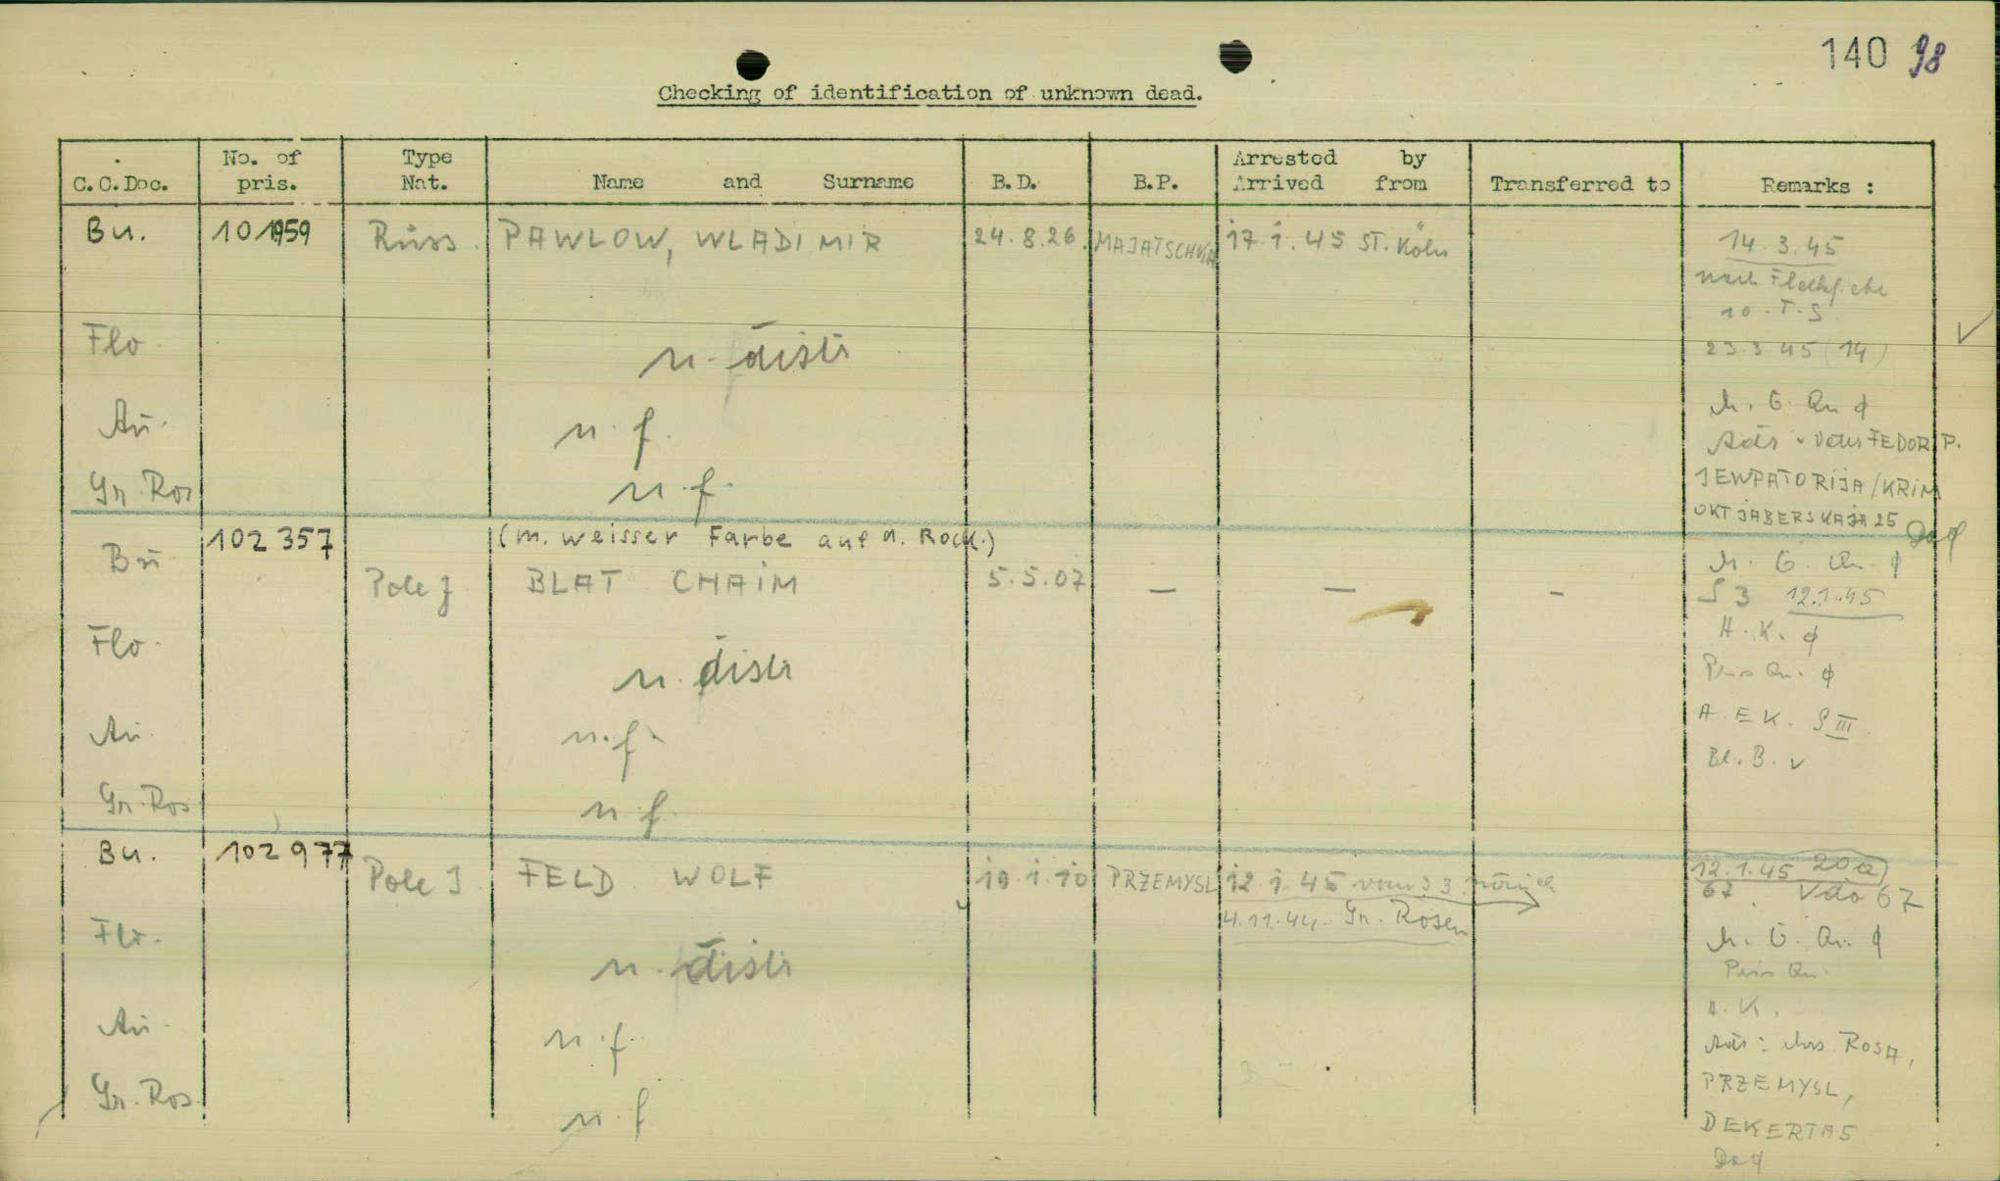 140 98
Checking of identification of unknown dead.
C.C.Doc. No. of pris. Type Nat. Name and Surname B.D. B.P. Arrested by Arrived from Transferred to Remarks :
Bu. 101959 Russ. PAWLOW, WLADIMIR 24.8.26. MAJATSCHKA 17.1.45 ST. Köln 14.3.45
nach
10. T. S.
Flo. n. distr 23.3.45 (14)
Au. n. f. M. G. Qu ϕ
Adr. Vater FEDOR P.
Gr. Ros n. f. JEWPATORIJA/KRIM
OKTJABERSKAJA 25
Dac ϕ
Bu 102 357 (m. weisser Farbe auf d. Rock.)
M. G. Qu. ϕ
Pole J BLAT CHAIM 5.5.07 – – – S 3 12.1.45
H. K. ϕ
Flo. n. distr Pers Qu. ϕ
Au. n. f. A E K. S III
Bl. B. v
Gr. Ros n. f.
Bu. 102 977 Pole J FELD WOLF 10.1.10 PRZEMYSL 12.1.45 vom S 3 12.1.45 20a
67. V do 67
4.11.44. Gr. Rosen
Flo. n. distr M. G. Qu. ϕ
Pers Qu.
Au. n. f. A. K.
Adr: ROSA,
Gr. Ros. n. f PRZEMYSL,
DEKERTA 5
Dac ϕ